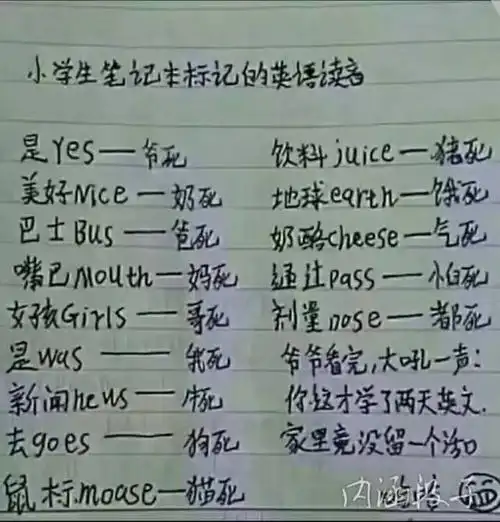 小学生笔记本标记的英语读音
是Yes—爷死
美好Nice—奶死
巴士Bus—爸死
嘴巴Mouth—妈死
女孩Girls—哥死
是was—我死
新闻news—牛死
去goes—狗死
鼠标moase—猫死
饮料juice—猪死
地球earth—饿死
奶酪cheese—气死
通过pass—怕死
剂量dose—都死
爷爷看完,大吼一声:
你这才学了两天英文.
家里竟没留一个活口
内涵段子